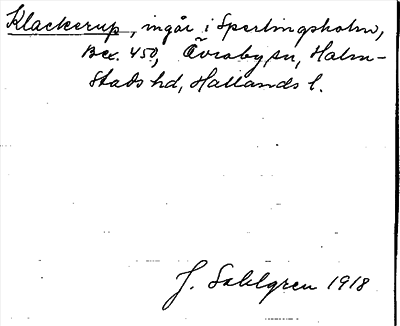 Klackerup, ingår i Sperlingsholm,
Bex. 450, Övraby sn, Halm-
stads hd, Hallands l.
J. Sahlgren 1918